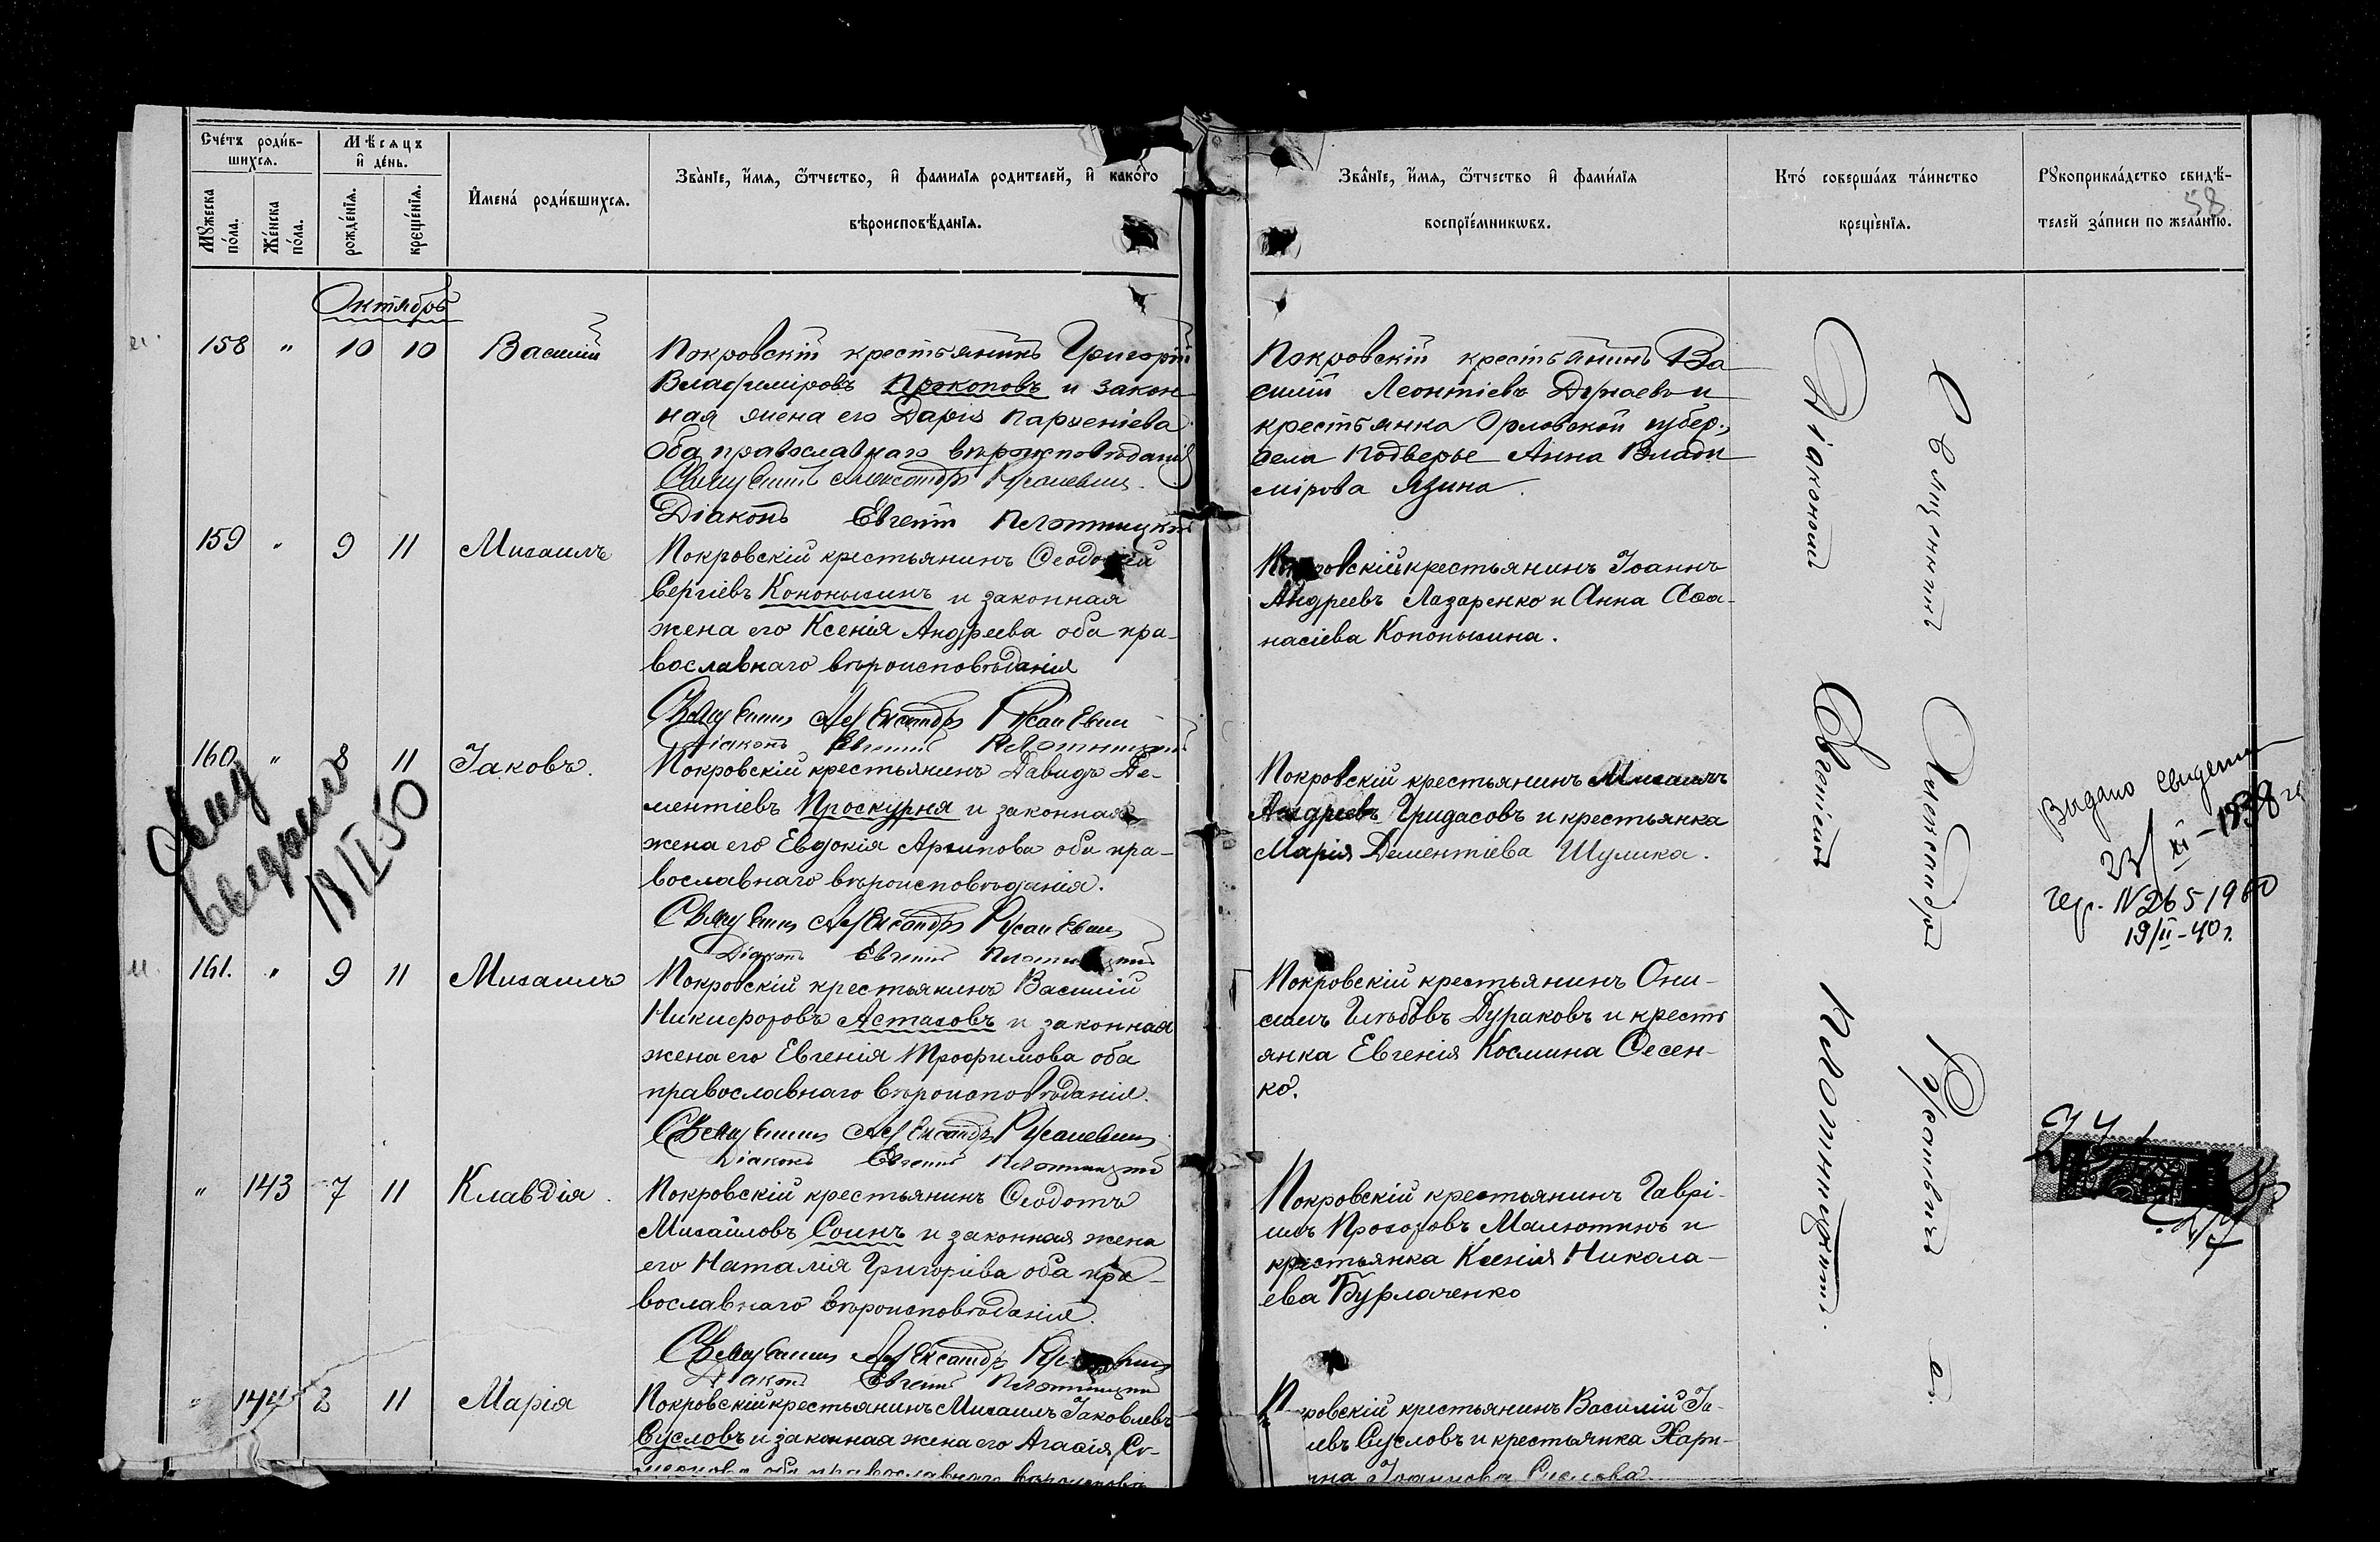 Счетъ родив-
шихся.
Мѣсяцъ
и день.
Мужеска
пола.
Женска
пола.
рожденія.
крещенія.
Имена родившихся.
Званіе, имя, отчество, и фамилія родителей, и какого
вѣроисповѣданія.
Званіе, имя, отчество и фамилія
воспріемниковъ.
Кто совершалъ таинство
крещенія.
Рукоприкладство свидѣ-
телей записи по желанію.
58
Октябрь
158 " 10 10 Василій
Покровскій крестьянинъ Григорій
Владиміровъ Прокоповъ и закон
ная жена его Дарія Парѳеніева
оба православнаго вѣроисповѣданія
Священникъ Александръ Русаневичъ
Діаконъ Евгеній Плотницкій
Покровскій крестьянинъ Ва
силій Леонтіевъ и
крестьянка Орловской губер.,
села Подверье Анна Влади
мірова Язина.
159 " 9 11 Михаилъ
Покровскій крестьянинъ Ѳеодосій
Сергіевъ Кононыхинъ и законная
жена его Ксенія Андреева оба пра-
вославнаго вѣроисповѣданія
Священникъ Александръ Русаневичъ
Діаконъ Евгеній Плотницкій
Покровскій крестьянинъ Іоаннъ
Андреевъ Лазаренко и Анна Аѳа-
насіева Кононыхина.
160 " 8 11 Іаковъ.
Покровскій крестьянинъ Давидъ Де-
ментіевъ Проскурня и законная
жена его Евдокія Архипова оба пра-
вославнаго вѣроисповѣданія.
Священникъ Александръ Русаневичъ
Діаконъ Евгеній Плотницкій
Покровскій крестьянинъ Михаилъ
Андреевъ Гридасовъ и крестьянка
Марія Дементіева Шулика.
Выдано
23/XI-1938 г.
19/II-40 г.
161. " 9 11 Михаилъ
Покровскій крестьянинъ Василій
Никифоровъ Астаховъ и законная
жена его Евгенія Трофимова оба
православнаго вѣроисповѣданія.
Священникъ Александръ Русаневичъ
Діаконъ Евгеній Плотницкій
Покровскій крестьянинъ Они-
симъ Глѣбовъ Дураковъ и кресть
янка Евгенія Космина Ѳесен-
ко.
" 143 7 11 Клавдія.
Покровскій крестьянинъ Ѳеодотъ
Михайловъ Соинъ и законная жена
его Наталія Григоріева оба пра-
вославнаго вѣроисповѣданія.
Священникъ Александръ Русаневичъ
Діаконъ Евгеній Плотницкій
Покровскій крестьянинъ Гаврі-
илъ Прохоровъ Малютинъ и
крестьянка Ксенія Никола-
ева Бурлаченко
" 144 8 11 Марія
Покровскій крестьянинъ Михаилъ Іаковлевъ
Сусловъ и законная жена его Агафія Си-
оба православнаго
Покровскій крестьянинъ Василій Іа-
левъ Сусловъ и крестьянка Хари-
Іоаннова Суслова
Священникъ Александръ Русаневичъ и
Діаконъ Евгеній Плотницкій.